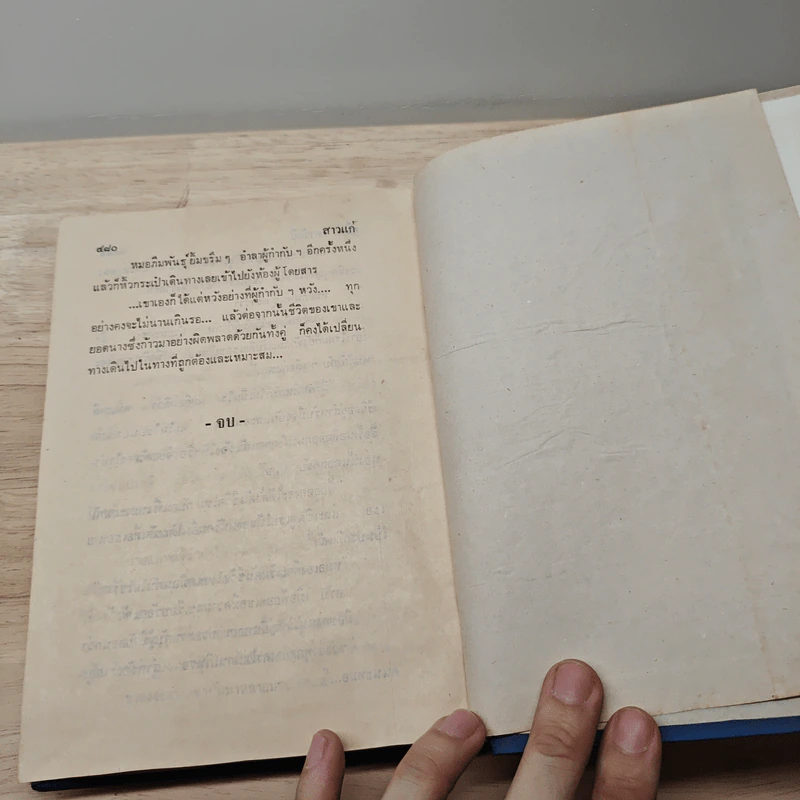 สาวแก่
๔๘๐
หมอภีมพันธุ์ ยิ้มขรึม ๆ อำลาผู้กำกับ ๆ อีกครั้งหนึ่ง
แล้วก็หิ้วกระเป๋าเดินทางเลยเข้าไปยังห้องผู้โดยสาร
...เขาเองก็ได้แต่หวังอย่างที่ผู้กำกับ ๆ หวัง.... ทุก
อย่างคงจะไม่นานเกินรอ... แล้วต่อจากนั้นชีวิตของเขาและ
ยอดนางซึ่งก้าวมาอย่างผิดพลาดด้วยกันทั้งคู่ ก็คงได้เปลี่ยน
ทางเดินไปในทางที่ถูกต้องและเหมาะสม...
- จบ -